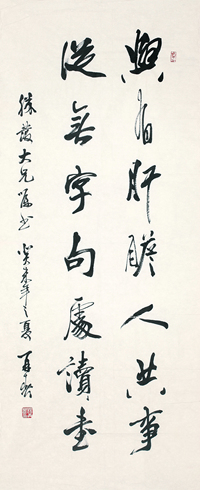 與有肝膽人共事
從無字句處讀書
勝發大兄屬書 癸未年之夏